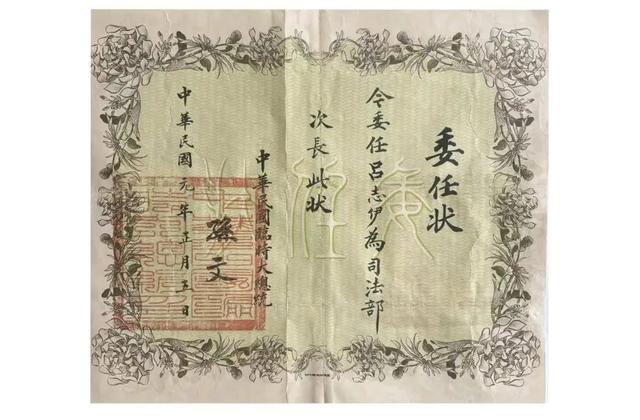 委任状
令委任吕志伊為司法部
次長此状
中華民國臨時大總統
孫文
中華民國元年正月五日